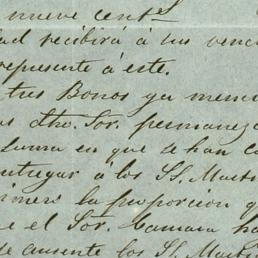 nueve cent.s
dad recibirá á sus venci
represente á este.
tres Bonos ya menc
as dho. Sor. permanez
suma en que se han c
ntregar á los SS. Marti
imero la proporcion q
e el Sor. Camara ha
se ausente los SS. Marti